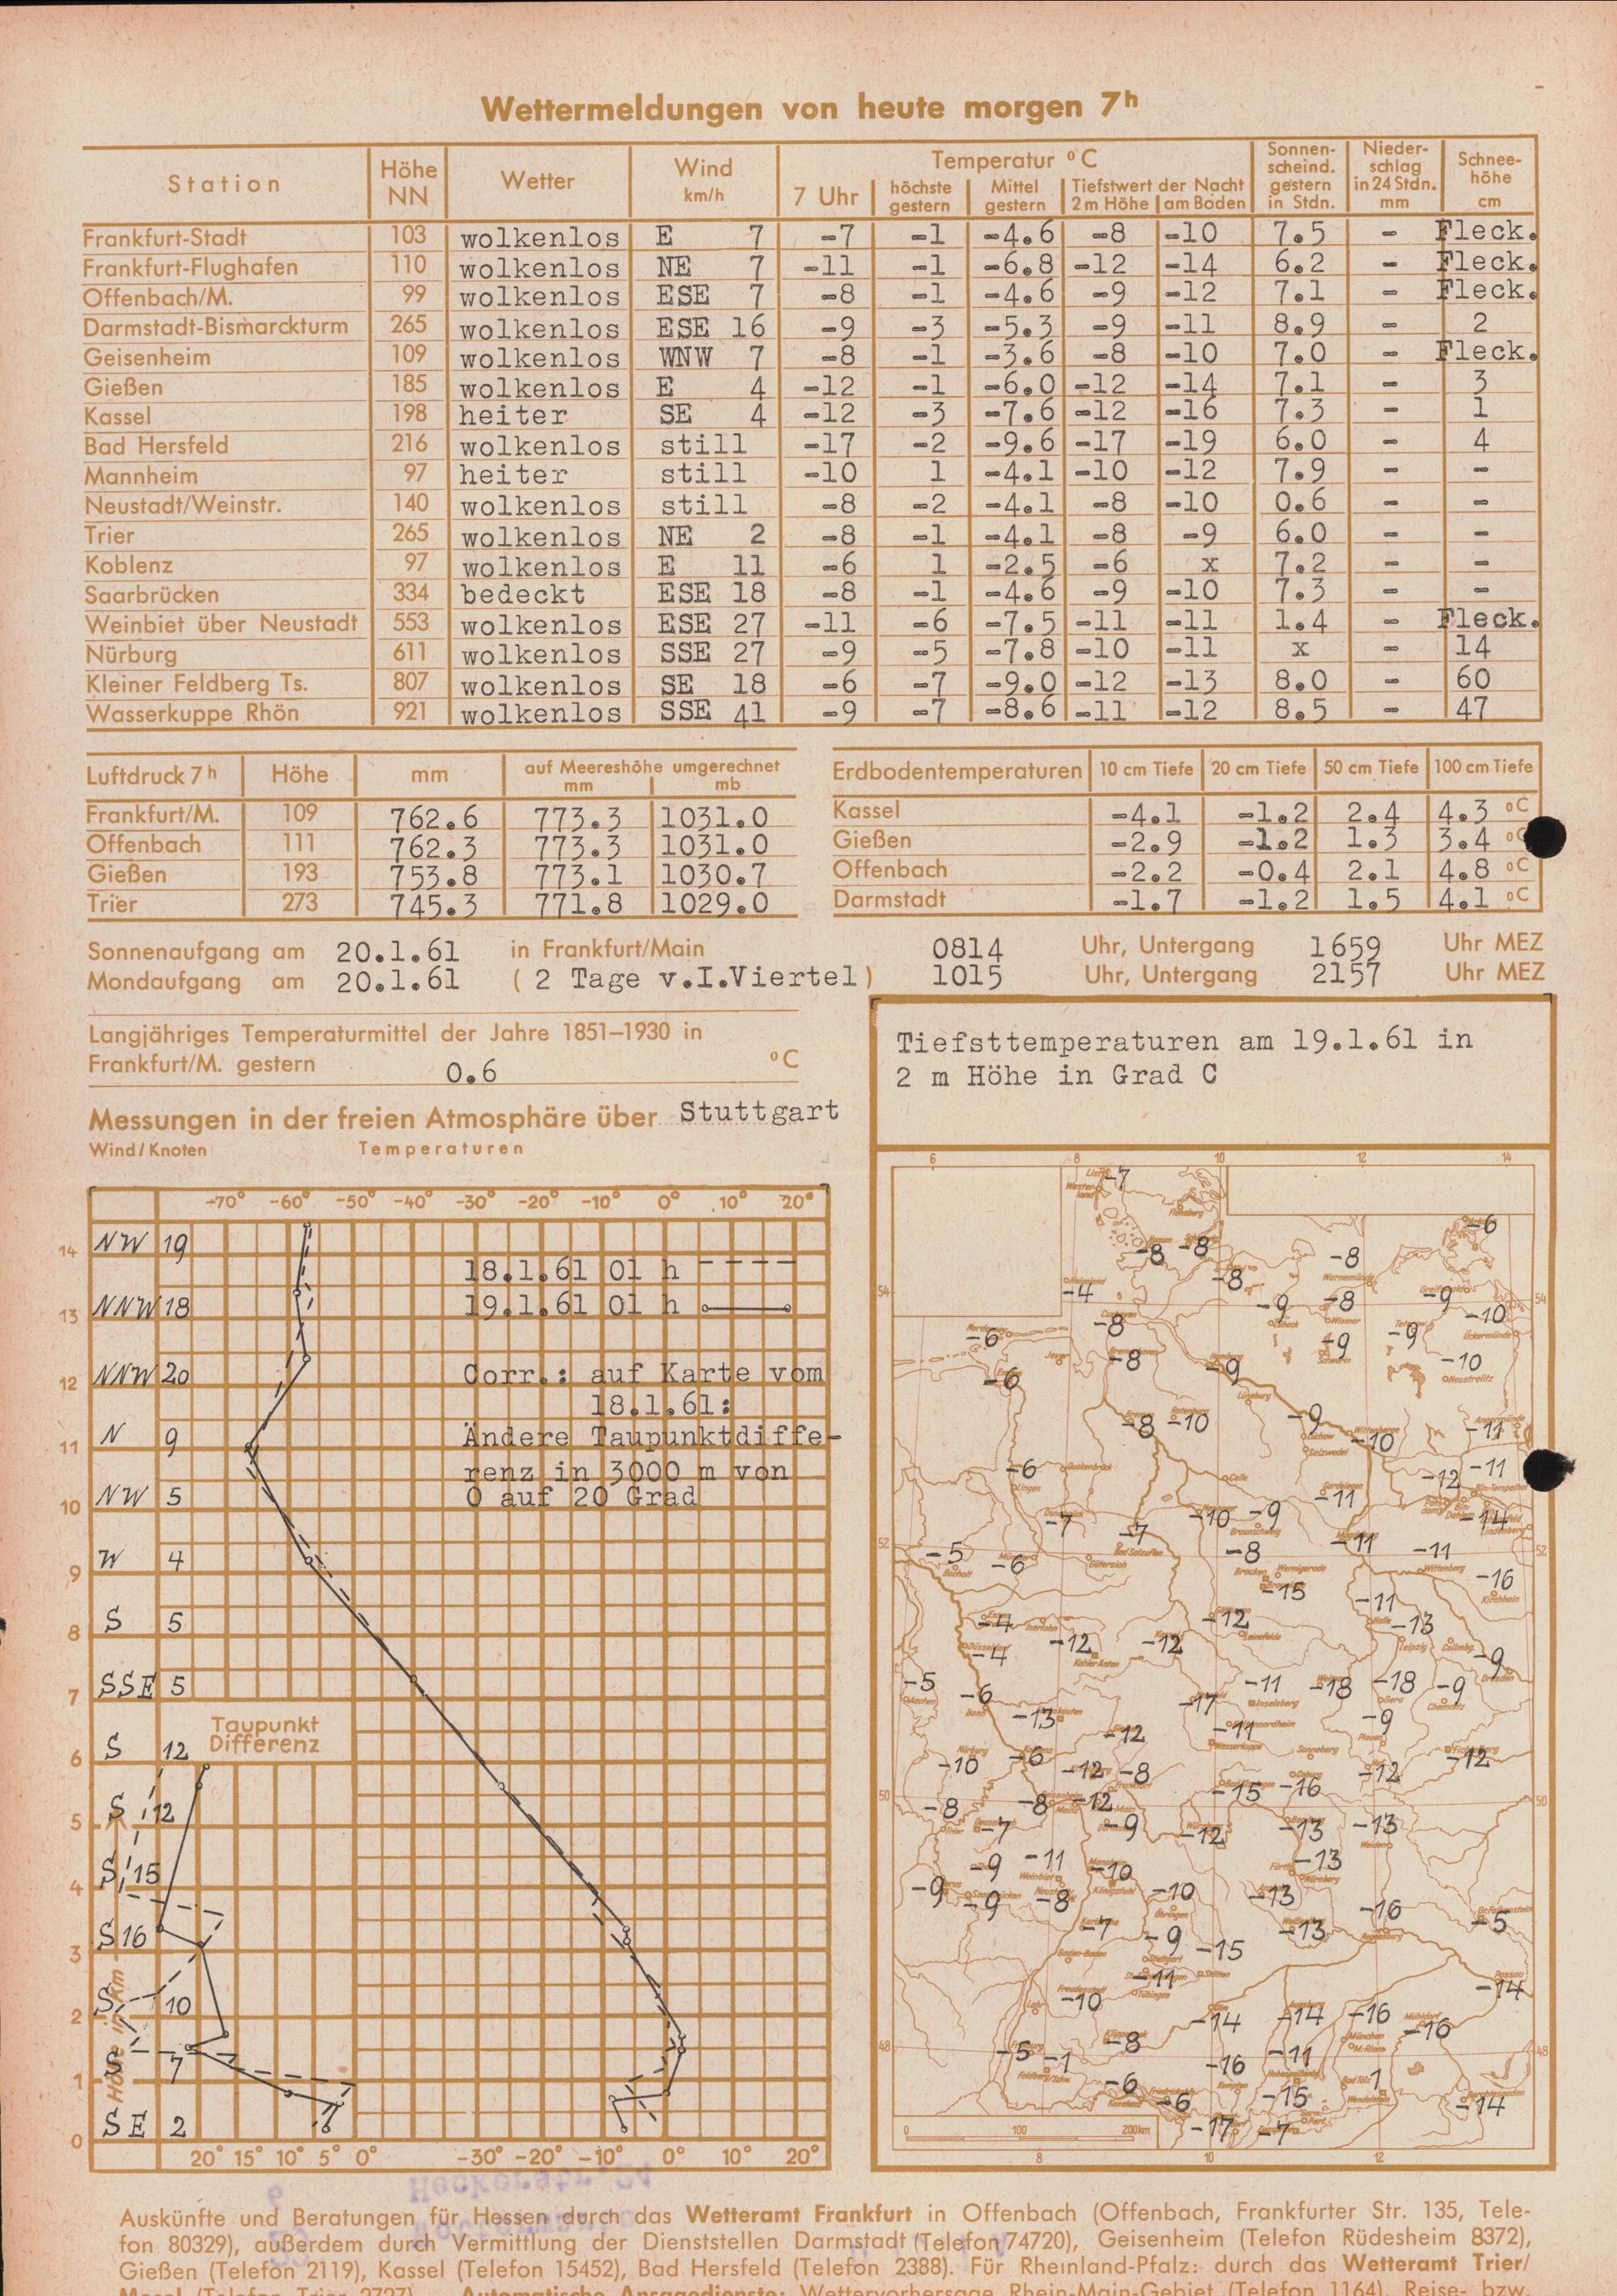 Wettermeldungen von heute morgen 7h
Station Höhe NN Wetter Wind km/h Temperatur °C Sonnenscheind. gestern in Stdn. Niederschlag in 24 Stdn. mm Schneehöhe cm
7 Uhr höchste gestern Mittel gestern Tiefstwert der Nacht 2 m Höhe am Boden
Frankfurt-Stadt 103 wolkenlos E 7 -7 -1 -4.6 -8 -10 7.5 - Fleck.
Frankfurt-Flughafen 110 wolkenlos NE 7 -11 -1 -6.8 -12 -14 6.2 - Fleck.
Offenbach/M. 99 wolkenlos ESE 7 -8 -1 -4.6 -9 -12 7.1 - Fleck.
Darmstadt-Bismarckturm 265 wolkenlos ESE 16 -9 -3 -5.3 -9 -11 8.9 - 2
Geisenheim 109 wolkenlos WNW 7 -8 -1 -3.6 -8 -10 7.0 - Fleck.
Gießen 185 wolkenlos E 4 -12 -1 -6.0 -12 -14 7.1 - 3
Kassel 198 heiter SE 4 -12 -3 -7.6 -12 -16 7.3 - 1
Bad Hersfeld 216 wolkenlos still -17 -2 -9.6 -17 -19 6.0 - 4
Mannheim 97 heiter still -10 1 -4.1 -10 -12 7.9 - -
Neustadt/Weinstr. 140 wolkenlos still -8 -2 -4.1 -8 -10 0.6 - -
Trier 265 wolkenlos NE 2 -8 -1 -4.1 -8 -9 6.0 - -
Koblenz 97 wolkenlos E 11 -6 1 -2.5 -6 x 7.2 - -
Saarbrücken 334 bedeckt ESE 18 -8 -1 -4.6 -9 -10 7.3 - -
Weinbiet über Neustadt 553 wolkenlos ESE 27 -11 -6 -7.5 -11 -11 1.4 - Fleck.
Nürburg 611 wolkenlos SSE 27 -9 -5 -7.8 -10 -11 x - 14
Kleiner Feldberg Ts. 807 wolkenlos SE 18 -6 -7 -9.0 -12 -13 8.0 - 60
Wasserkuppe Rhön 921 wolkenlos SSE 41 -9 -7 -8.6 -11 -12 8.5 - 47
Luftdruck 7h Höhe mm auf Meereshöhe umgerechnet mm mb
Frankfurt/M. 109 762.6 773.3 1031.0
Offenbach 111 762.3 773.3 1031.0
Gießen 193 753.8 773.1 1030.7
Trier 273 745.3 771.8 1029.0
Erdbodentemperaturen 10 cm Tiefe 20 cm Tiefe 50 cm Tiefe 100 cm Tiefe
Kassel -4.1 -1.2 2.4 4.3 °C
Gießen -2.9 -1.2 1.3 3.4 °C
Offenbach -2.2 -0.4 2.1 4.8 °C
Darmstadt -1.7 -1.2 1.5 4.1 °C
Sonnenaufgang am 20.1.61 in Frankfurt/Main 0814 Uhr, Untergang 1659 Uhr MEZ
Mondaufgang am 20.1.61 (2 Tage v.I.Viertel) 1015 Uhr, Untergang 2157 Uhr MEZ
Langjähriges Temperaturmittel der Jahre 1851–1930 in
Frankfurt/M. gestern 0.6 °C
Messungen in der freien Atmosphäre über Stuttgart
Wind/Knoten Temperaturen
-70° -60° -50° -40° -30° -20° -10° 0° 10° 20°
14 NW 19
18.1.61 01 h
13 NNW 18
19.1.61 01 h
12 NNW 20
Corr.: auf Karte vom
18.1.61:
11 N 9
Ändere Taupunktdiffe-
renz in 3000 m von
0 auf 20 Grad
10 NW 5
9 W 4
8 S 5
7 SSE 5
Taupunkt
Differenz
6 S 12
5 S 12
4 S 15
3 S 16
2 S 10
1 S 7
0 SE 2
Höhe in km
20° 15° 10° 5° 0° -30° -20° -10° 0° 10° 20°
Tiefsttemperaturen am 19.1.61 in
2 m Höhe in Grad C
6 8 10 12 14
-7
-6
-8 -8 -8
-4 -8
54 -9 -8 -9 -10 54
-6 -8 -9 -9
-6 -8 -9 -10
-8 -10 -9 -10 -11
-6 -11 -12 -11
-7 -7 -10 -9 -14
52 -5 -6 -8 -11 -11 52
-15 -16
-4 -12 -11 -13
-4 -12 -12 -9
-5 -6 -17 -11 -18 -18 -9
-13 -12 -11 -9
-10 -6 -12 -8 -12 -12
50 -8 -8 -12 -15 -16 50
-7 -9 -12 -13 -13
-9 -11 -10 -13
-9 -9 -8 -10 -13
-7 -9 -13 -16 -5
-11 -15 -14
-10 -14 -14 -16 -16
48 -5 -1 -8 -16 -11 48
-6 -6 -15 1 -14
-17 -7
0 100 200 km
8 10 12
Auskünfte und Beratungen für Hessen durch das Wetteramt Frankfurt in Offenbach (Offenbach, Frankfurter Str. 135, Tele-
fon 80329), außerdem durch Vermittlung der Dienststellen Darmstadt (Telefon 74720), Geisenheim (Telefon Rüdesheim 8372),
Gießen (Telefon 2119), Kassel (Telefon 15452), Bad Hersfeld (Telefon 2388). Für Rheinland-Pfalz: durch das Wetteramt Trier/
Mosel (Telefon Trier 2727). Automatische Ansagedienste: Wettervorhersage Rhein-Main-Gebiet (Telefon 1164), Reise- bzw.